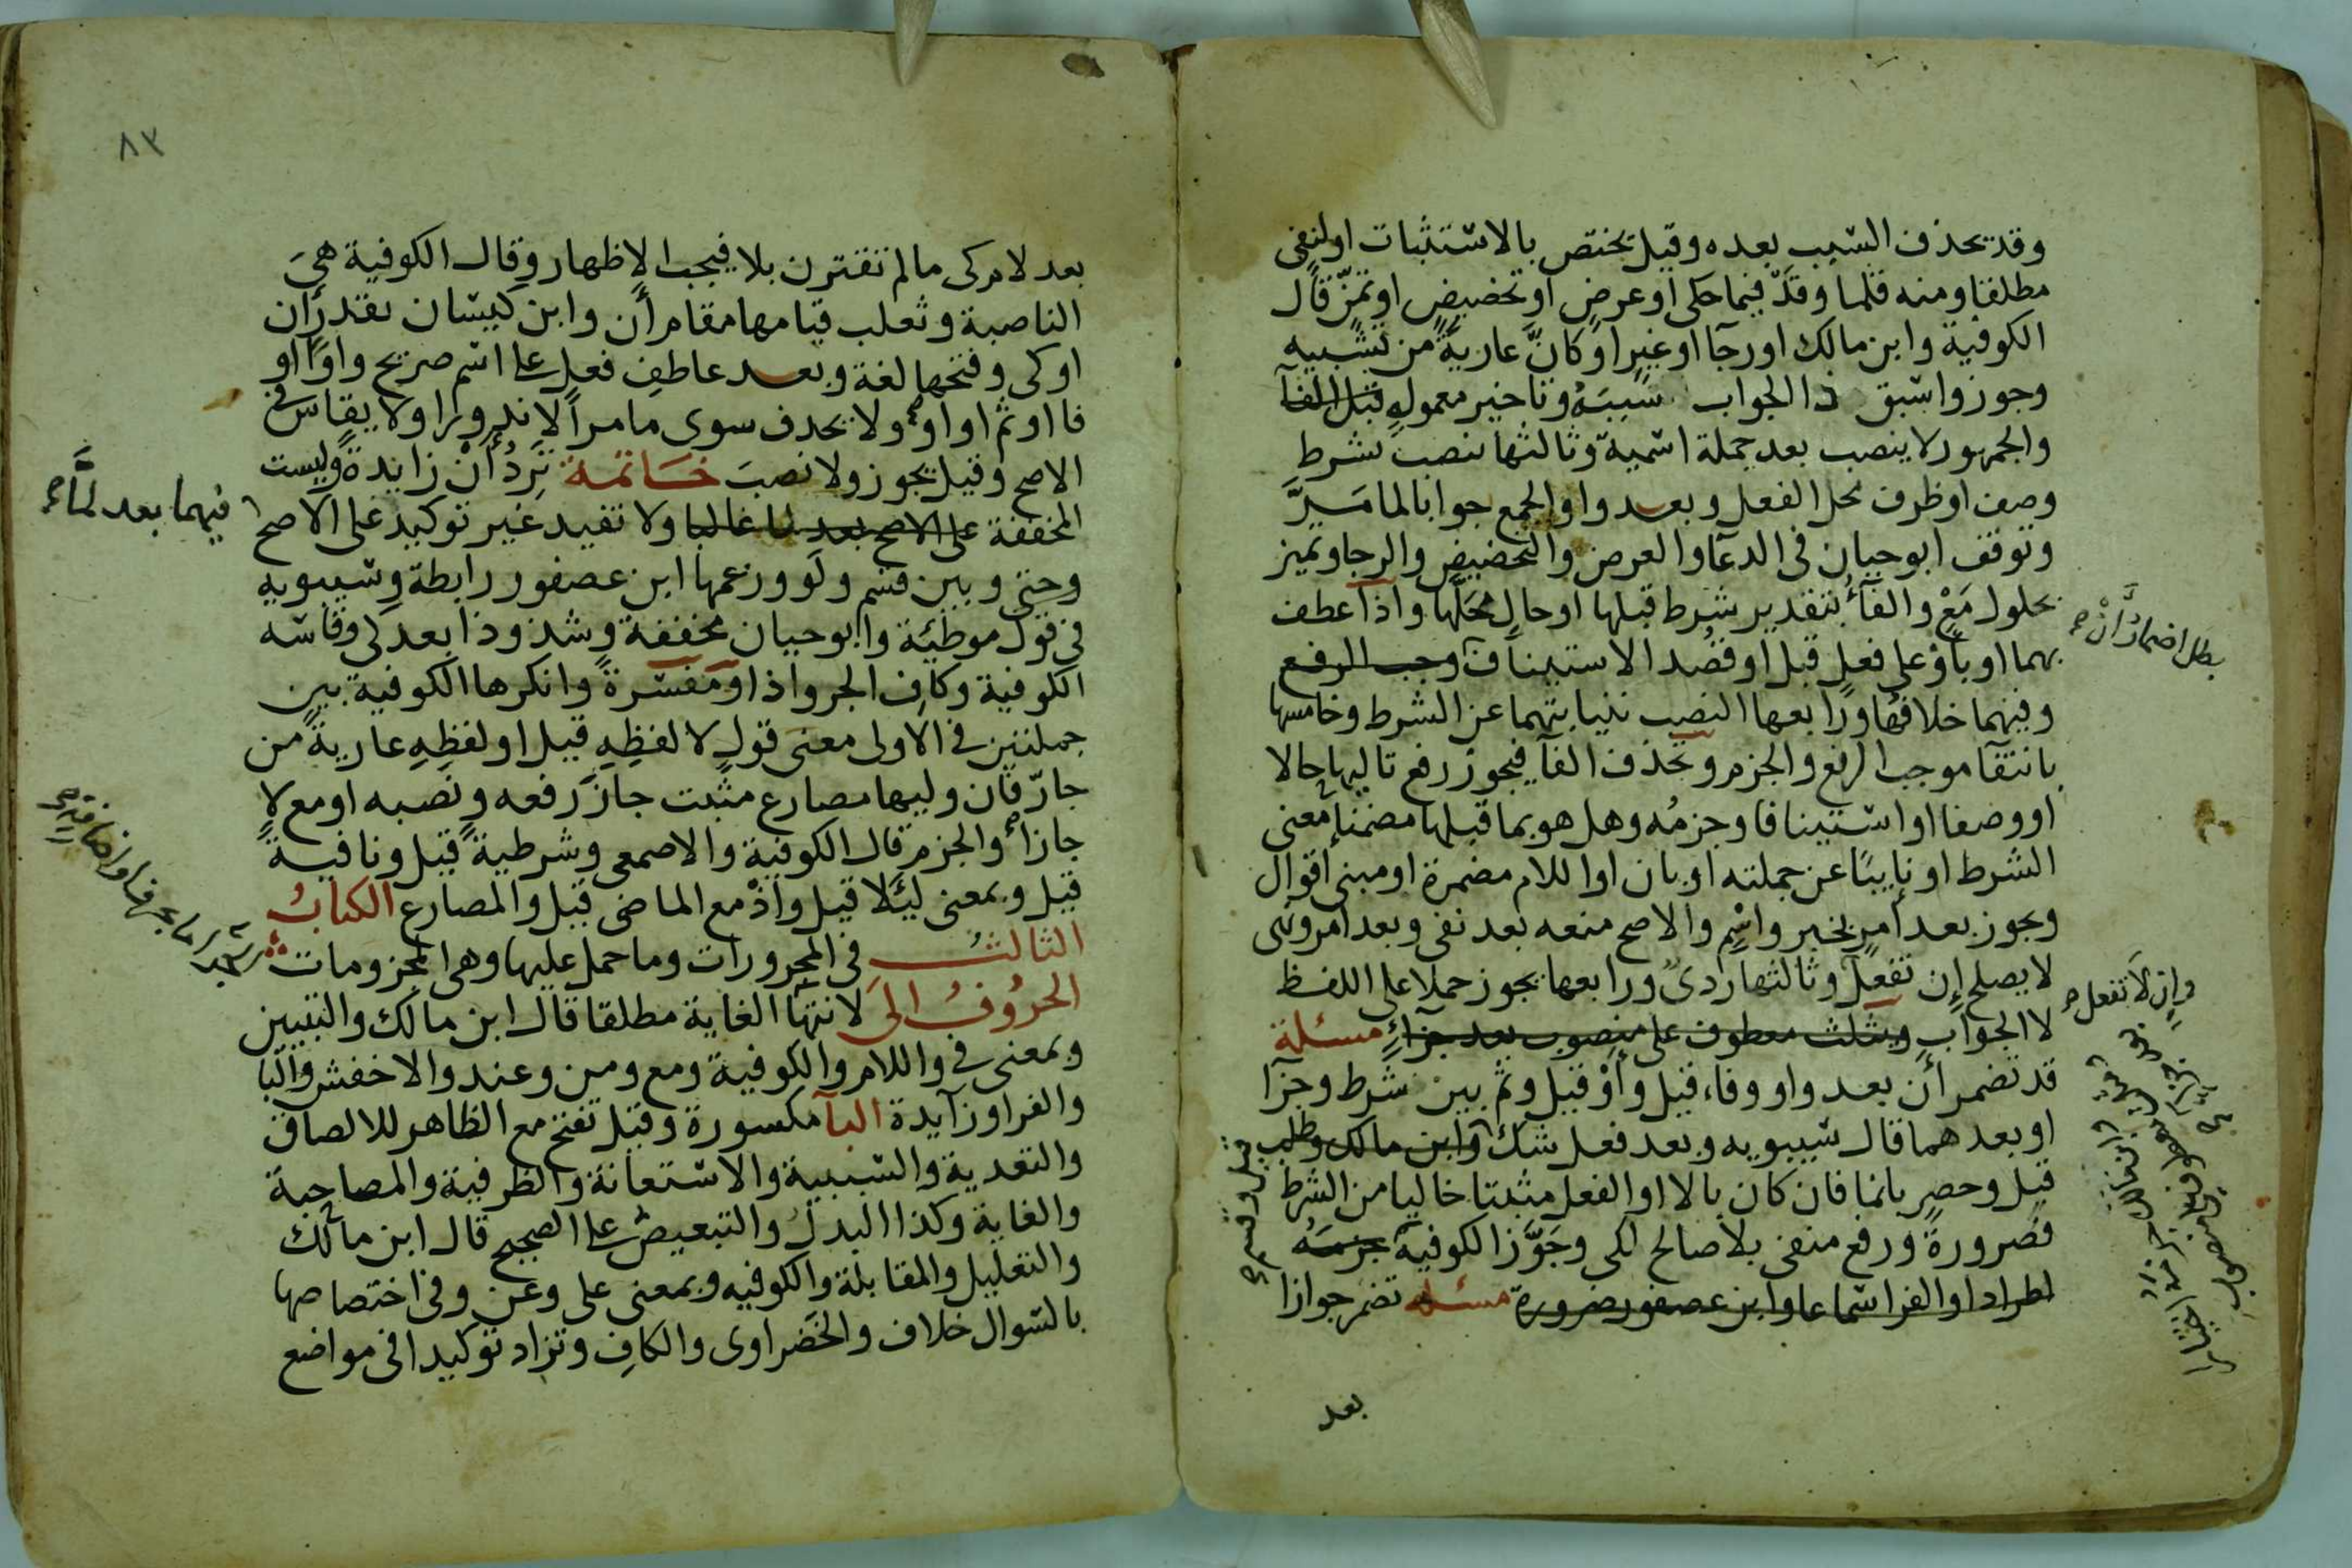 وقد يحذف السبب بعده وقيل يختص بالاستثبات او لنفى
مطلقا ومنه قلما وقد فيما حكى او عرض او تحضيض او تمن قال
الكوفية وابن مالك او رجا او غير او كان عارية من تشبيه
وجوزوا سبق ذا الجواب سببه وتاخير معموله قبل الفآ
والجمهور لا ينصب بعد جملة اسمية وثالثها ننصب بشرط
وصف او ظرف محل الفعل وبعد واو الجمع جوابا لما مر
وتوقف ابو حيان فى الدعا والعرض والتحضيض والرجا وتميز
بحلول مع والفآء بتقدير شرط قبلها او حال محلها واذا عطف
بهما او باو على فعل قبل او قصد الاستيناف وجب الرفع
بطل اضمار ان صح
وفيهما خلافها ورابعها النصب بنيابتهما عن الشرط وخامسها
بانتقآ موجب الرفع والجزم وتحذف الفآ فيجوز رفع تاليها حالا
او وصفا او استينافا وجزمه وهل هو بما قبلها مضمنا معنى
الشرط او نايبا عن جملته او بان او اللام مضمرة او مبنى اقوال
ويجوز بعد امر بخبر واسم والاصح منعه بعد نفى وبعد امر ونهى
لا يصلح ان تفعل وثالثها ردى ورابعها يجوز حملا على اللفظ
وان لا تفعل صح
لا الجواب ويثلث معطوف على منصوب بعد جزاء مسئلة
قد تضمر أن بعد واو وفاء قيل وأو قيل وثم بين شرط وجزآ
او بعدهما قال سيبويه وبعد فعل شك وابن مالك وطلب
قيل وحصر بانما فان كان بالا او الفعل مثبتا خاليا من الشرط
فضرورة ورفع منفى بلا صالح لكى وجوز الكوفية جزمه
اطرادا والفرا سماعا وابن عصفور ضرورة مسئله تضمر جوازا
بعد
٨٣
بعد لام كى ما لم تقترن بلا فيجب الاظهار وقال الكوفية هى
الناصبة وثعلب قيامها مقام أن وابن كيسان تقدر ان
او كى وفتحها لغة وبعد عاطف فعل على اسم صريح واوا او
فا او ثم او او ولا يحذف سوى ما مر الا ندورا ولا يقاس فى
الاصح وقيل يجوز ولا نصب خاتمة ترد أن زايدة وليست
المخففة على الاصح بعد لما غالبا ولا تفيد غير توكيد على الاصح
فيهما بعد لما صح
وحتى وبين قسم ولو وزعمها ابن عصفور رابطة وسيبويه
فى قول موطئة وابو حيان مخففة وشذوذا بعد كى وقاسه
الكوفية وكاف الجر واذا ومفسرة وانكرها الكوفية بين
جملتين فى الاولى معنى قول لا لفظه قيل او لفظه عارية من
جار فان وليها مضارع مثبت جاز رفعه ونصبه او مع لا
جازا والجزم قال الكوفية والاصمعى وشرطية قيل ونافية
قيل وبمعنى ليئلا قيل واذ مع الماضى قيل والمضارع الكتاب
الثالث فى المجرورات وما حمل عليها وهى المجزومات
الحروف الى لانتها الغاية مطلقا قال ابن مالك والتبيين
وبمعنى فى واللام والكوفية ومع ومن وعند والاخفش والبا
والفرا وزآيدة البآ مكسورة وقيل تفتح مع الظاهر للالصاق
والتعدية والسببية والاستعانة والظرفية والمصاحبة
والغاية وكذا البدل والتبعيض على الصحيح قال ابن مالك
والتعليل والمقابلة والكوفيه وبمعنى على وعن وفى اختصاصها
بالسوال خلاف والخضراوى والكاف وتزاد توكيدا فى مواضع